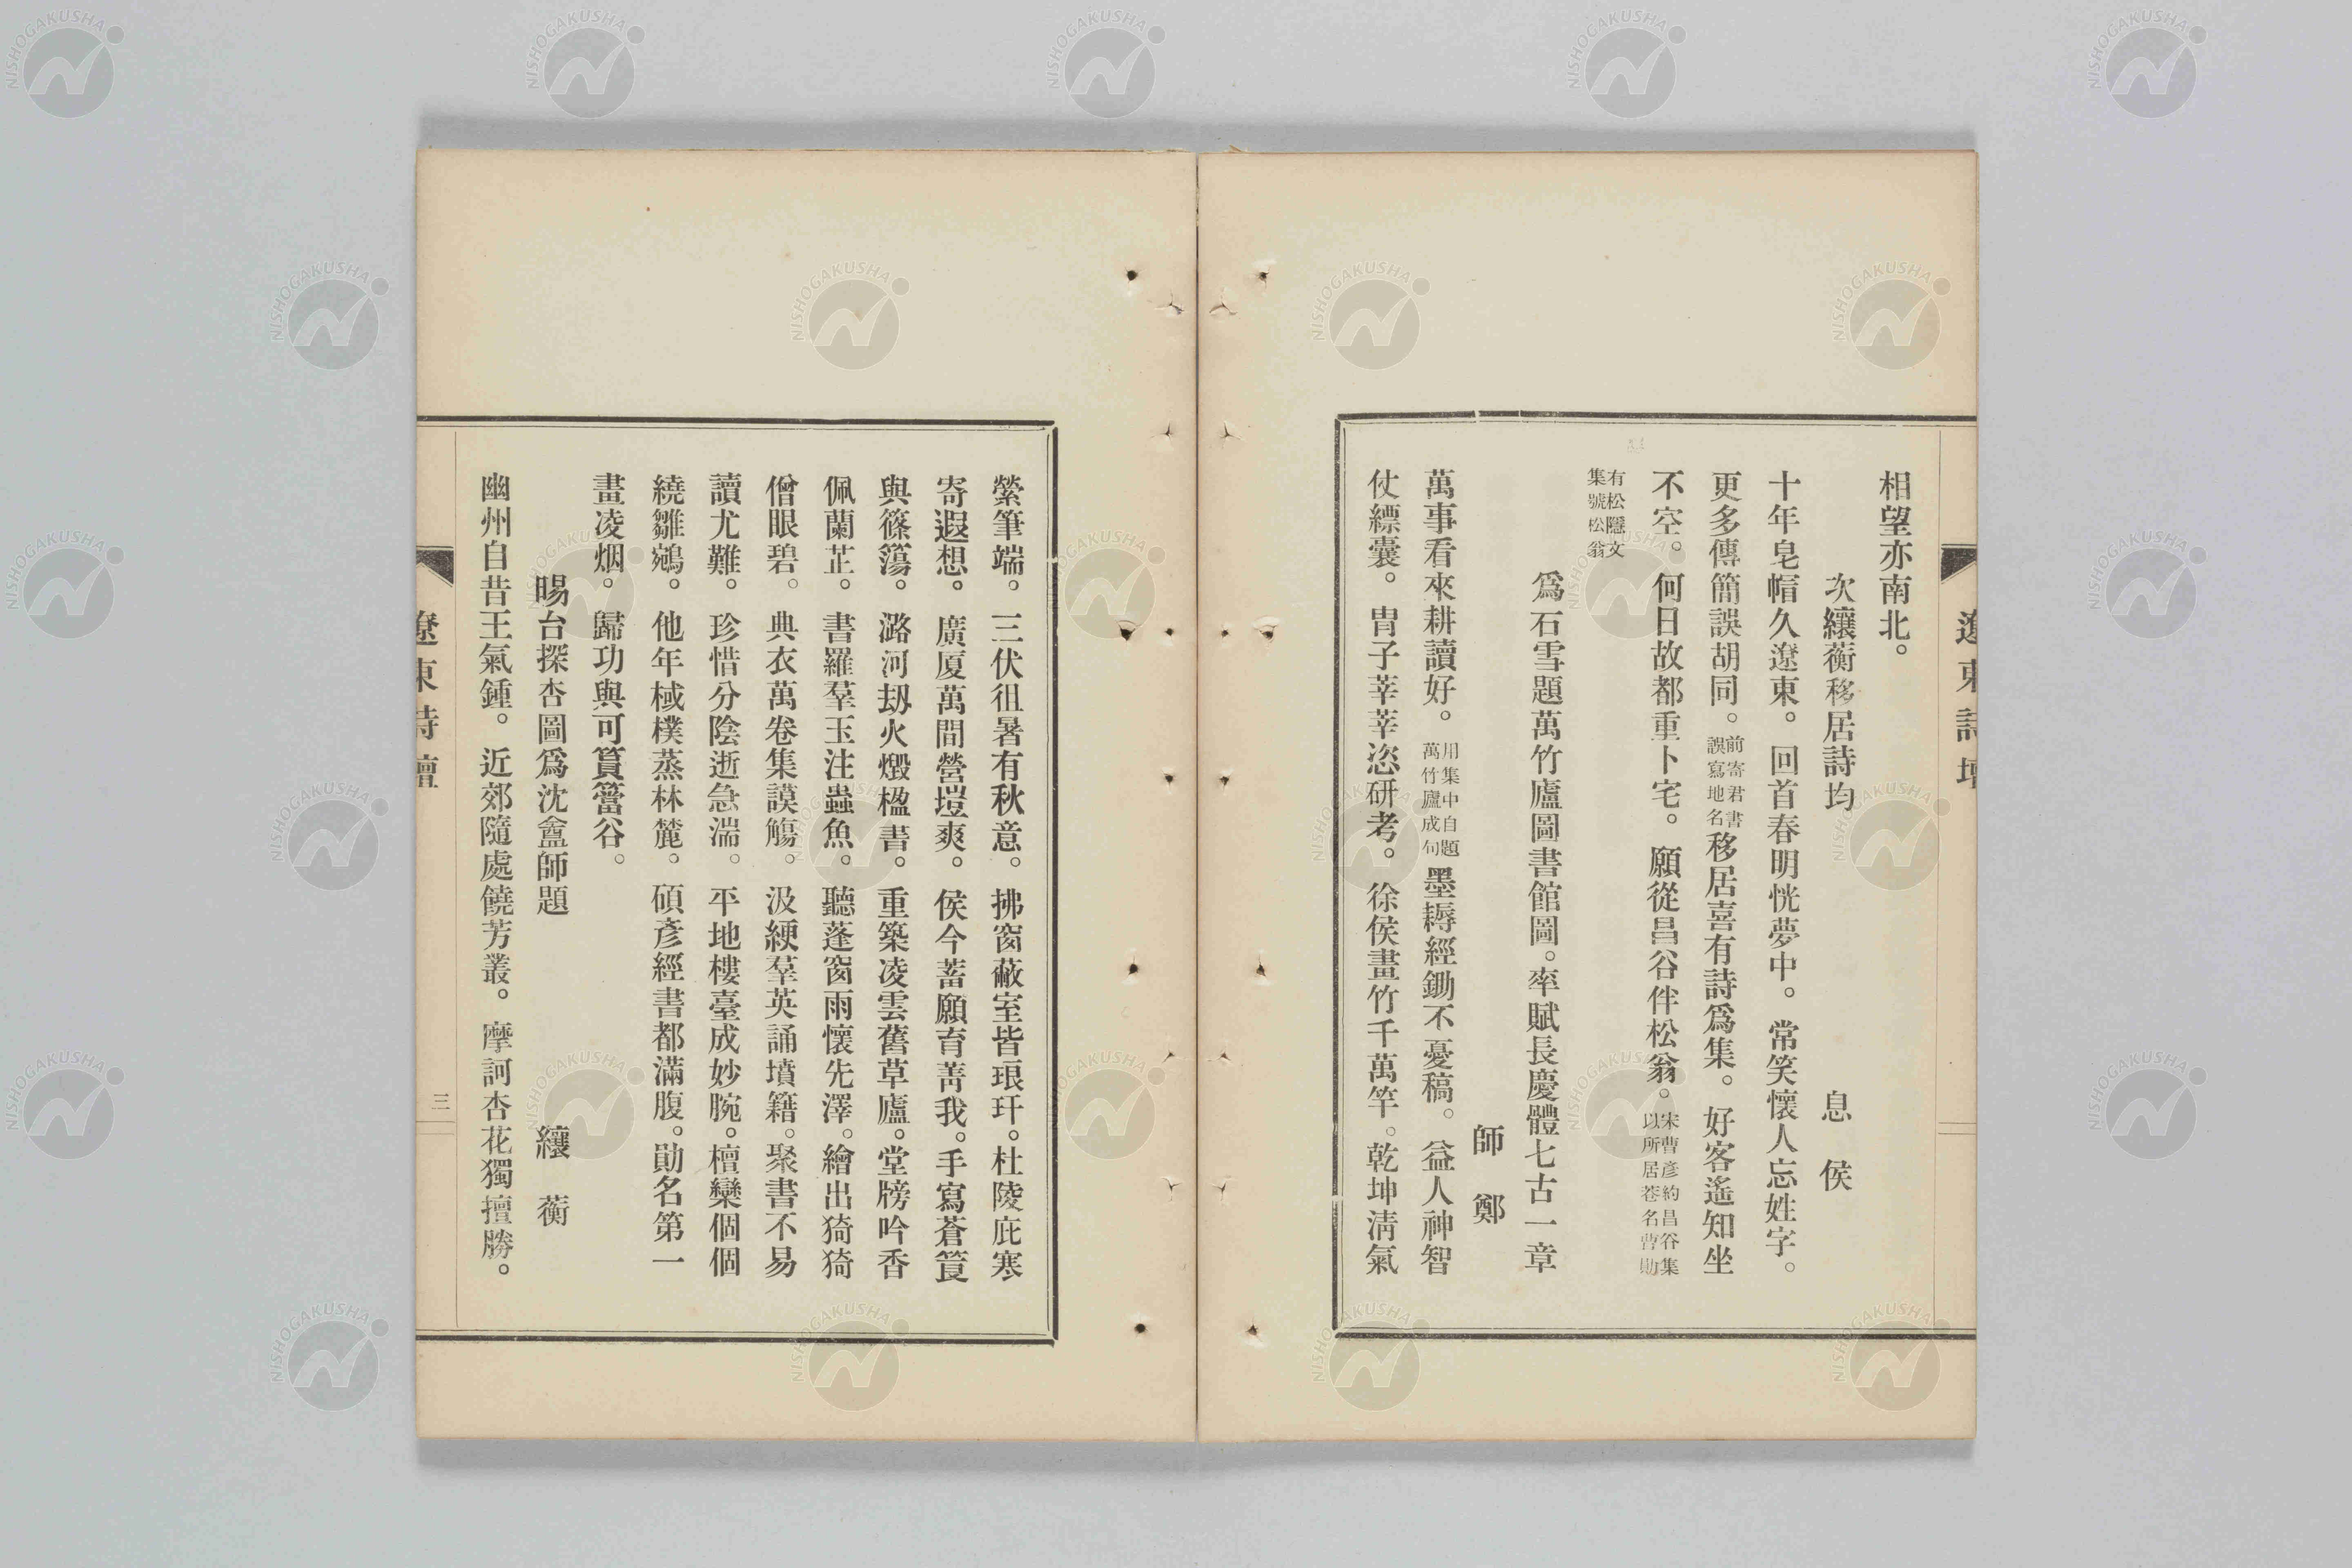 遼東詩壇
相望亦南北。
次纕蘅移居詩均　息侯
十年皂帽久遼東。回首春明恍夢中。常笑懷人忘姓字。
更多傳簡誤胡同。前寄君書誤寫地名移居喜有詩爲集。好客遙知坐
不空。何日故都重卜宅。願從昌谷伴松翁。宋曹彥約昌谷集以所居巷名曹勛
有松隱文集號松翁
爲石雪題萬竹廬圖書館圖。率賦長慶體七古一章
師鄭
萬事看來耕讀好。用集中自題萬竹廬成句墨耨經鋤不憂稿。益人神智
仗縹囊。胄子莘莘恣研考。徐侯畫竹千萬竿。乾坤淸氣
縈筆端。三伏徂暑有秋意。拂窗蔽室皆琅玕。杜陵庇寒
寄遐想。廣厦萬間營塏爽。侯今蓄願育菁我。手寫蒼筤
與篠簜。潞河刼火燬楹書。重築凌雲舊草廬。堂牓吟香
佩蘭芷。書羅羣玉注蟲魚。聽蓬窗雨懷先澤。繪出猗猗
僧眼碧。典衣萬卷集謨觴。汲綆羣英誦墳籍。聚書不易
讀尤難。珍惜分陰逝急湍。平地樓臺成妙腕。檀欒個個
繞雛鵷。他年棫樸蒸林麓。碩彥經書都滿腹。勛名第一
畫凌烟。歸功與可篔簹谷。
暘台探杏圖爲沈盦師題　纕蘅
幽州自昔王氣鍾。近郊隨處饒芳叢。摩訶杏花獨擅勝。
遼東詩壇
三
NISHOGAKUSHA